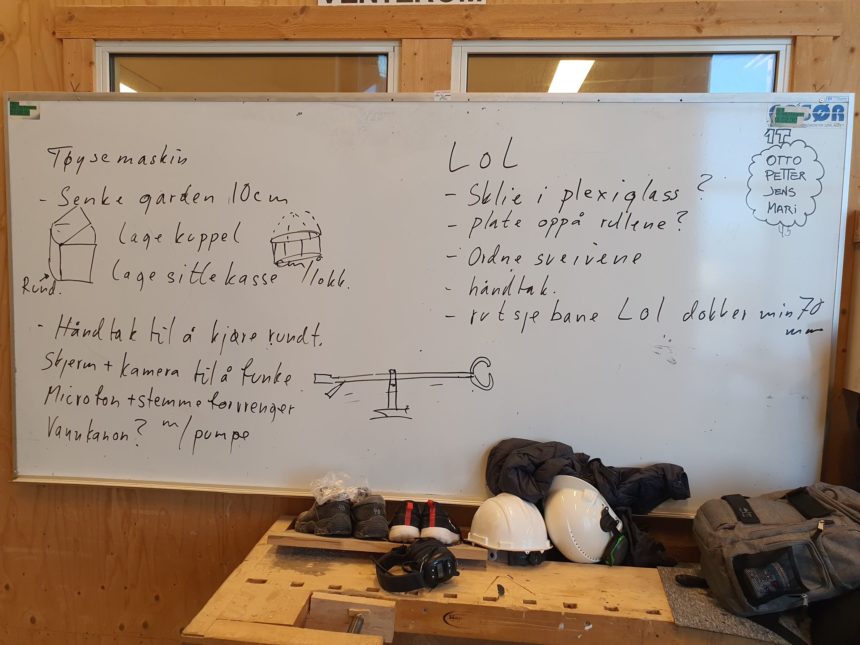 VENTEROM
Tøysemaskin
- Senke garden 10cm
Lage kuppel
Lage sittekasse m/lokk.
Rund.
- Håndtak til å kjøre rundt.
Skjerm + kamera til å funke
Microfon + stemme forvrenger
Vannkanon? m/pumpe
LOL
- Sklie i plexiglass?
- plate oppå rullene?
- Ordne sveivene
- håndtak.
- rutsjebane Lol dokker min 70 mm
1T
OTTO
PETTER
JENS
MARi